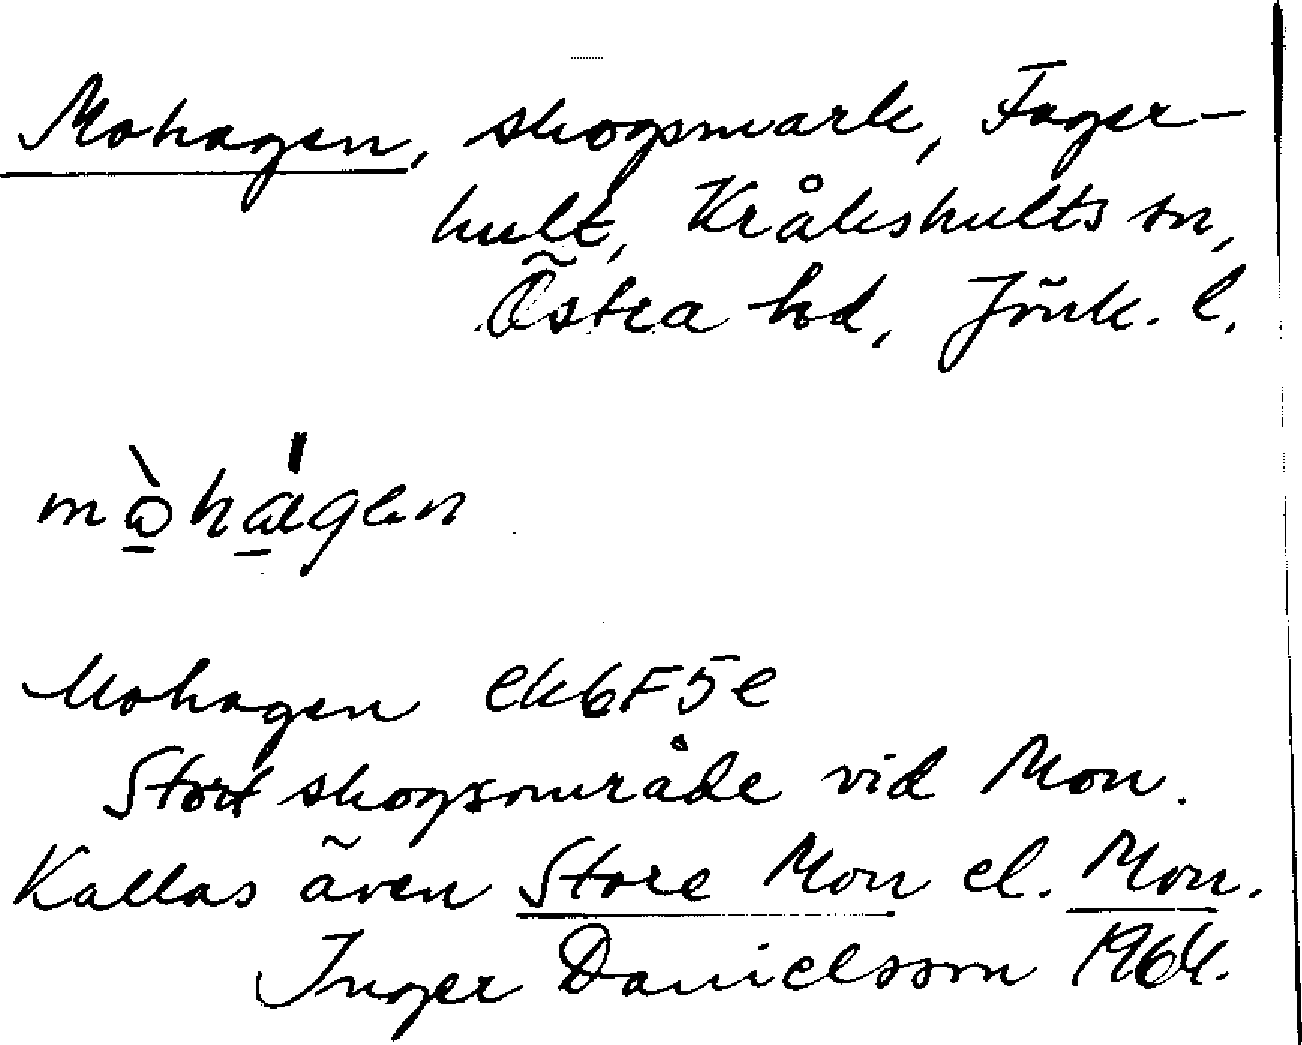 Mohagen, skogsmark, Fager-
hult, Kråkshults sn,
Östra hd, Jönk. l.
mò̱há̱gen
Mohagen ek6F5e
Stort skogsområde vid Mon.
Kallas även Store Mon el. Mon.
Inger Danielsson 1964.